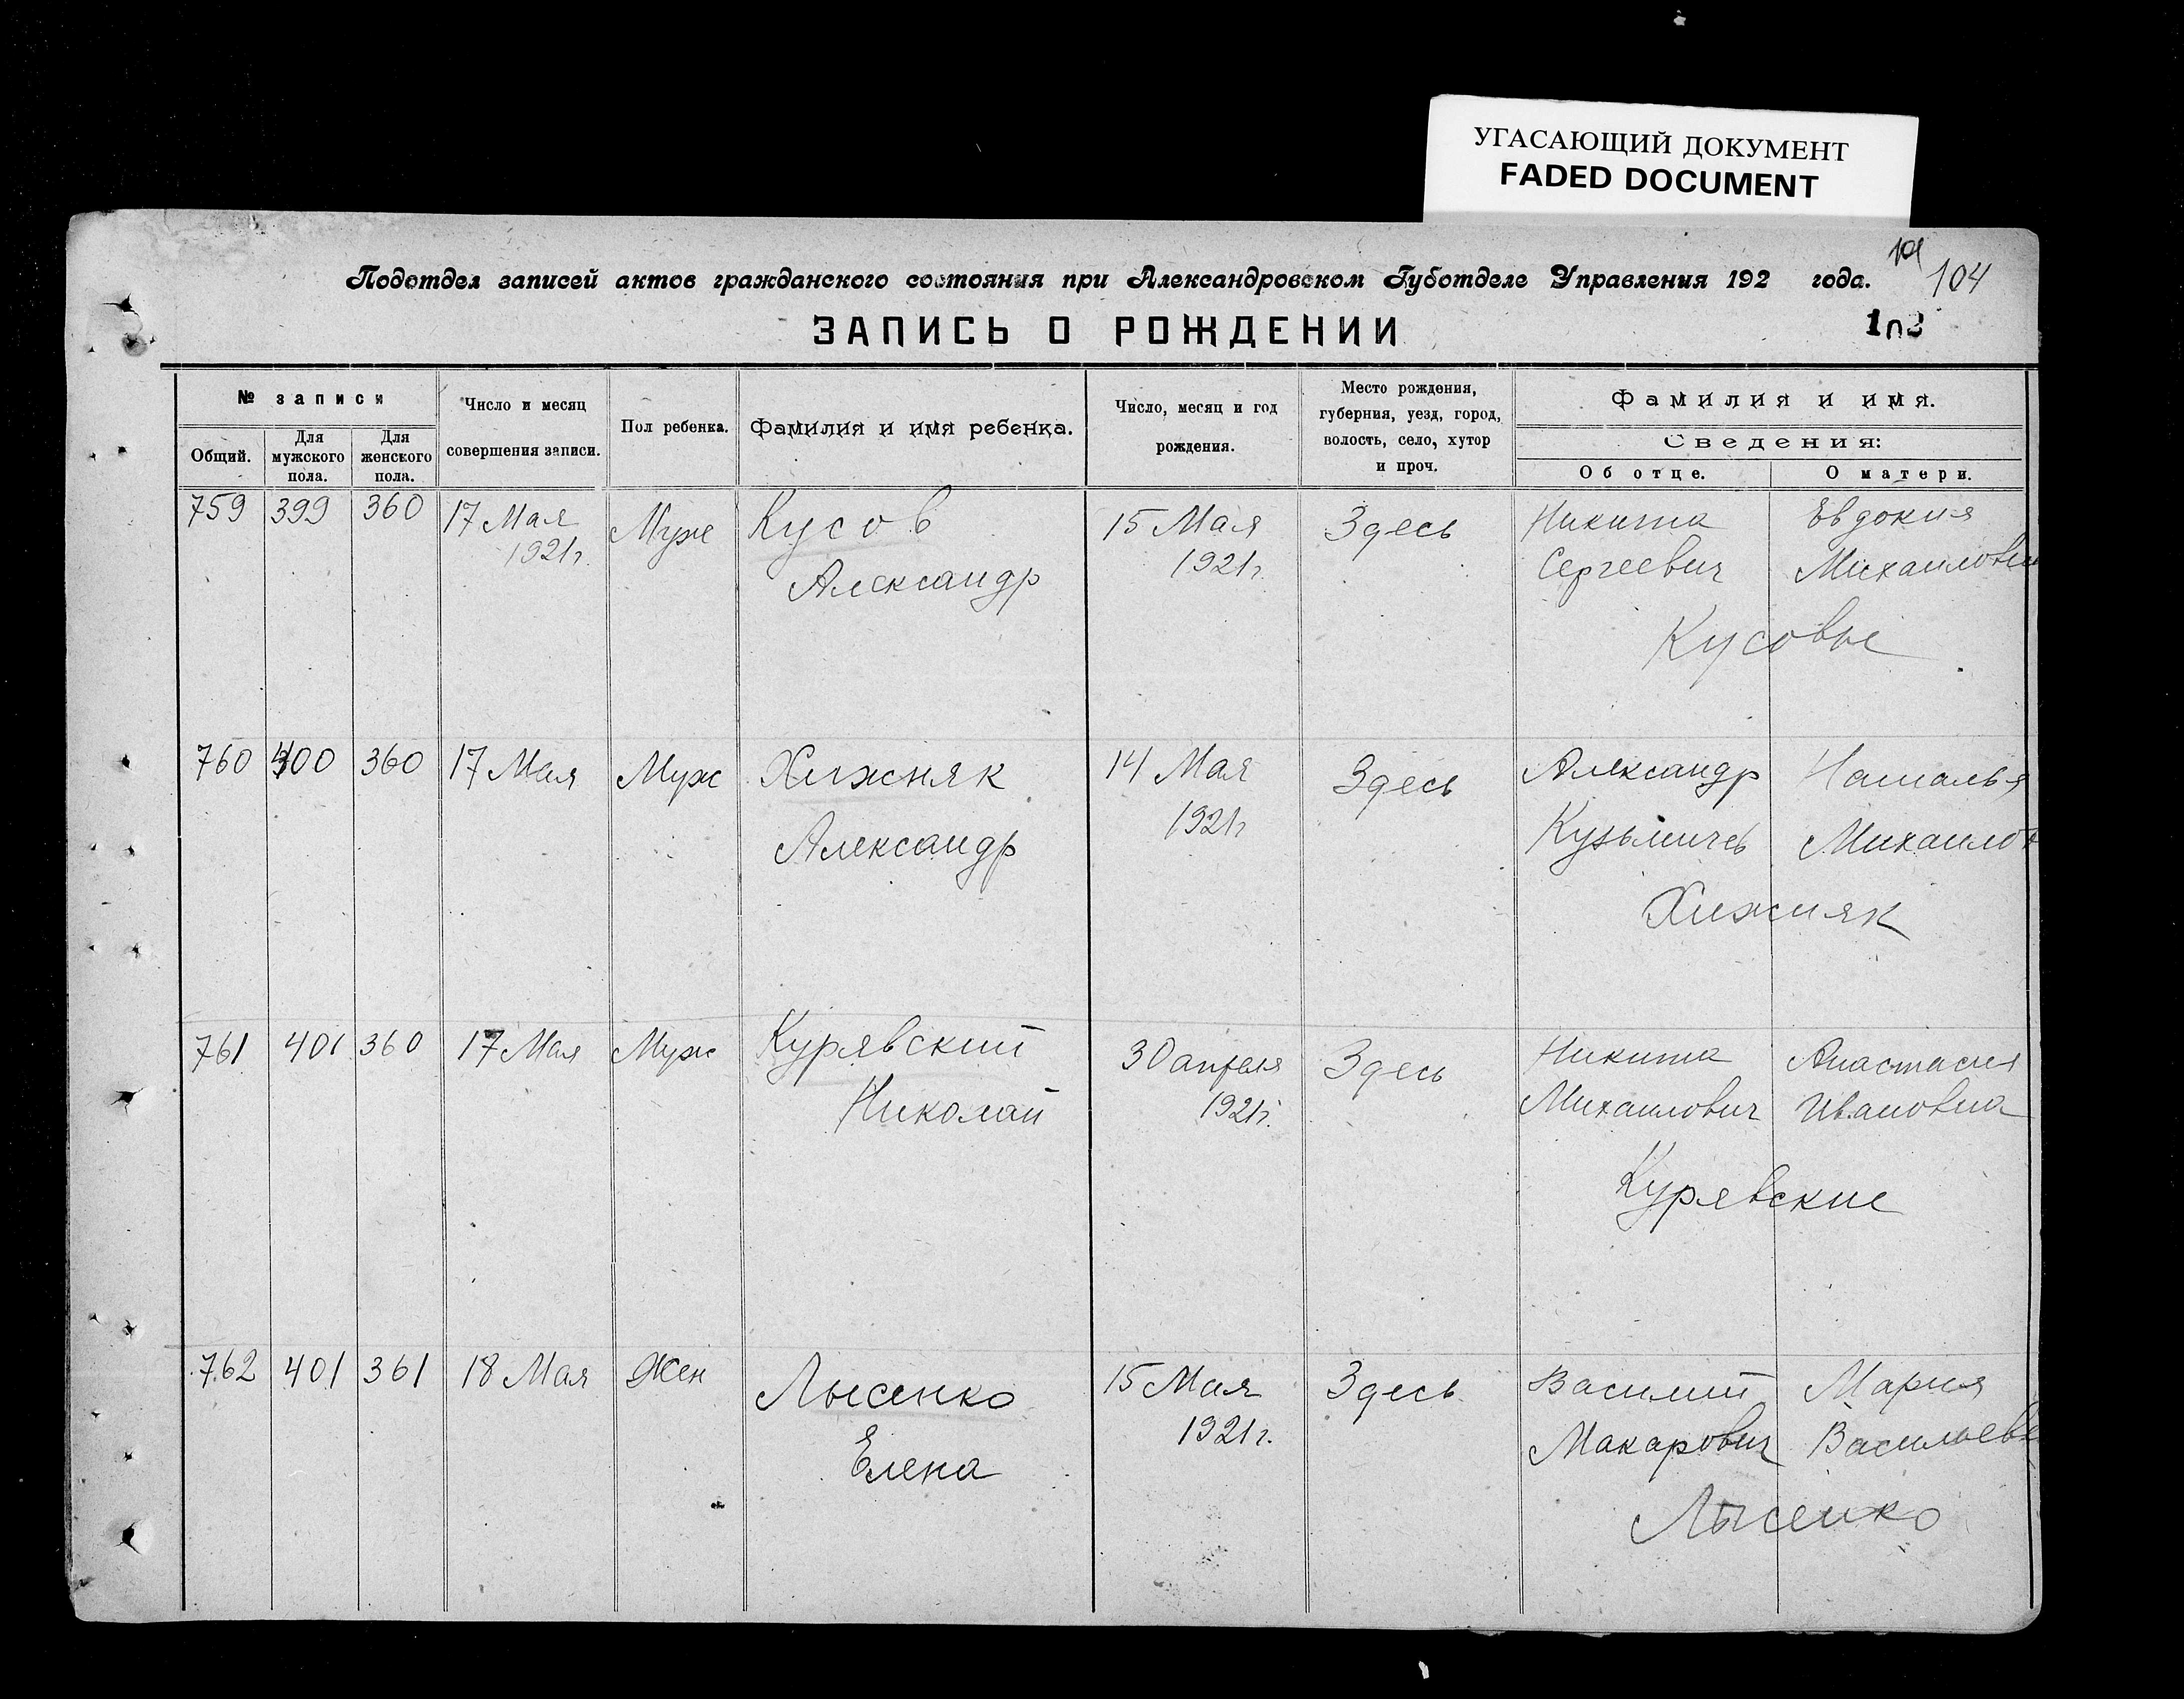 УГАСАЮЩИЙ ДОКУМЕНТ
FADED DOCUMENT
Подотдел записей актов гражданского состояния при Александровском Губотделе Управления 192 года.
104
ЗАПИСЬ О РОЖДЕНИИ
№ записи
Общий.
Для мужского пола.
Для женского пола.
Число и месяц совершения записи.
Пол ребенка.
Фамилия и имя ребенка.
Число, месяц и год рождения.
Место рождения, губерния, уезд, город, волость, село, хутор и проч.
Фамилия и имя.
Сведения:
Об отце.
О матери.
759 399 360 17 Мая Муж Кусов 15 Мая Здесь Никита Евдокия
1921г. Александр 1921г. Сергеевич Михайловн
Кусовы
760 400 360 17 Мая Муж Хижняк 14 Мая Здесь Александр Наталья
Александр 1921г Кузьмичев Михайлов
Хижняк
761 401 360 17 Мая Муж Курявский 30 апреля Здесь Никита Анастасия
Николай 1921г. Михайлович Ивановна
Курявские
762 401 361 18 Мая Жен Лысенко 15 Мая Здесь Василий Мария
Елена 1921г. Макарович Васильев
Лысенко